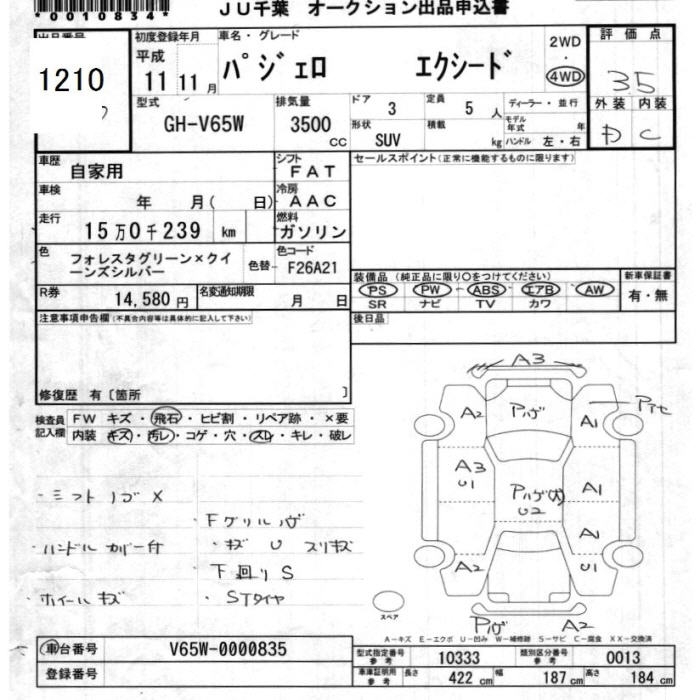 *0010834*
JU千葉 オークション出品申込書
出品番号
1210
初度登録年月
平成
11 11月
車名・グレード
パジェロ エクシード
2WD
・
4WD
評価点
35
外装 内装
D C
型式
GH-V65W
排気量
3500 CC
ドア
3
定員
5 人
形状
SUV
積載
kg
ディーラー・並行
モデル年式 年
ハンドル 左・右
車歴
自家用
シフト
FAT
車検
年 月( 日)
冷房
AAC
走行
15万0千239 km
燃料
ガソリン
色
フォレスタグリーン×クイ
ーンズシルバー
色替
色コード
F26A21
R券
14,580円
名変通知期限
月 日
セールスポイント(正常に機能するものに限ります)
装備品 (純正品に限り○をつけてください)
PS PW ABS エアB AW
SR ナビ TV カワ
新車保証書
有・無
後日品
注意事項申告欄(不具合内容等は具体的に記入して下さい)
修復歴 有〔箇所 〕
検査員
記入欄
FW キズ・飛石・ヒビ割・リペア跡・×要
内装 キズ・汚レ・コゲ・穴・スレ・キレ・破レ
・ミフトノブ×
・ハンドルカバー付
・ホイールキズ
・Fグリルハゲ
・キズ U スリキズ
・下廻りS
・STタイヤ
A3
A2
Pハゲ
A1
Pアセ
A3
U1
Pハゲ(大)
U2
A1
A1
A2
U1
スペア
Pハゲ
A2
A-キズ E-エクボ U-凹み W-補修跡 S-サビ C-腐食 XX-交換済
車台番号
V65W-0000835
登録番号
型式指定番号
参考
10333
類別区分番号
参考
0013
車庫証明用
参考
長さ
422 cm
幅
187 cm
高さ
184 cm